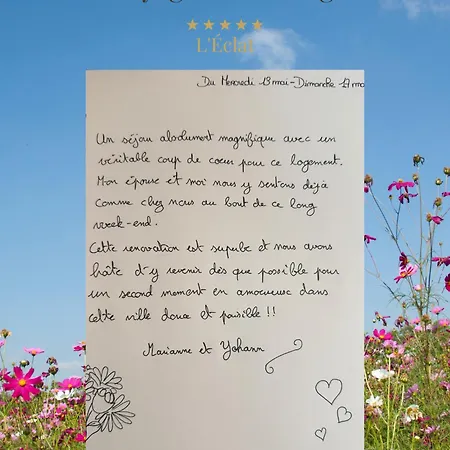 L'Éclat
Du Mercredi 13 mai - Dimanche 17 ma
Un séjour absolument magnifique avec un
véritable coup de coeur pour ce logement.
Mon épouse et moi nous y sentons déjà
comme chez nous au bout de ce long
week-end.
Cette renovation est superbe et nous avons
hâte d'y revenir dès que possible pour
un second moment en amoureux dans
cette ville douce et paisible !!
Marianne et Yohann